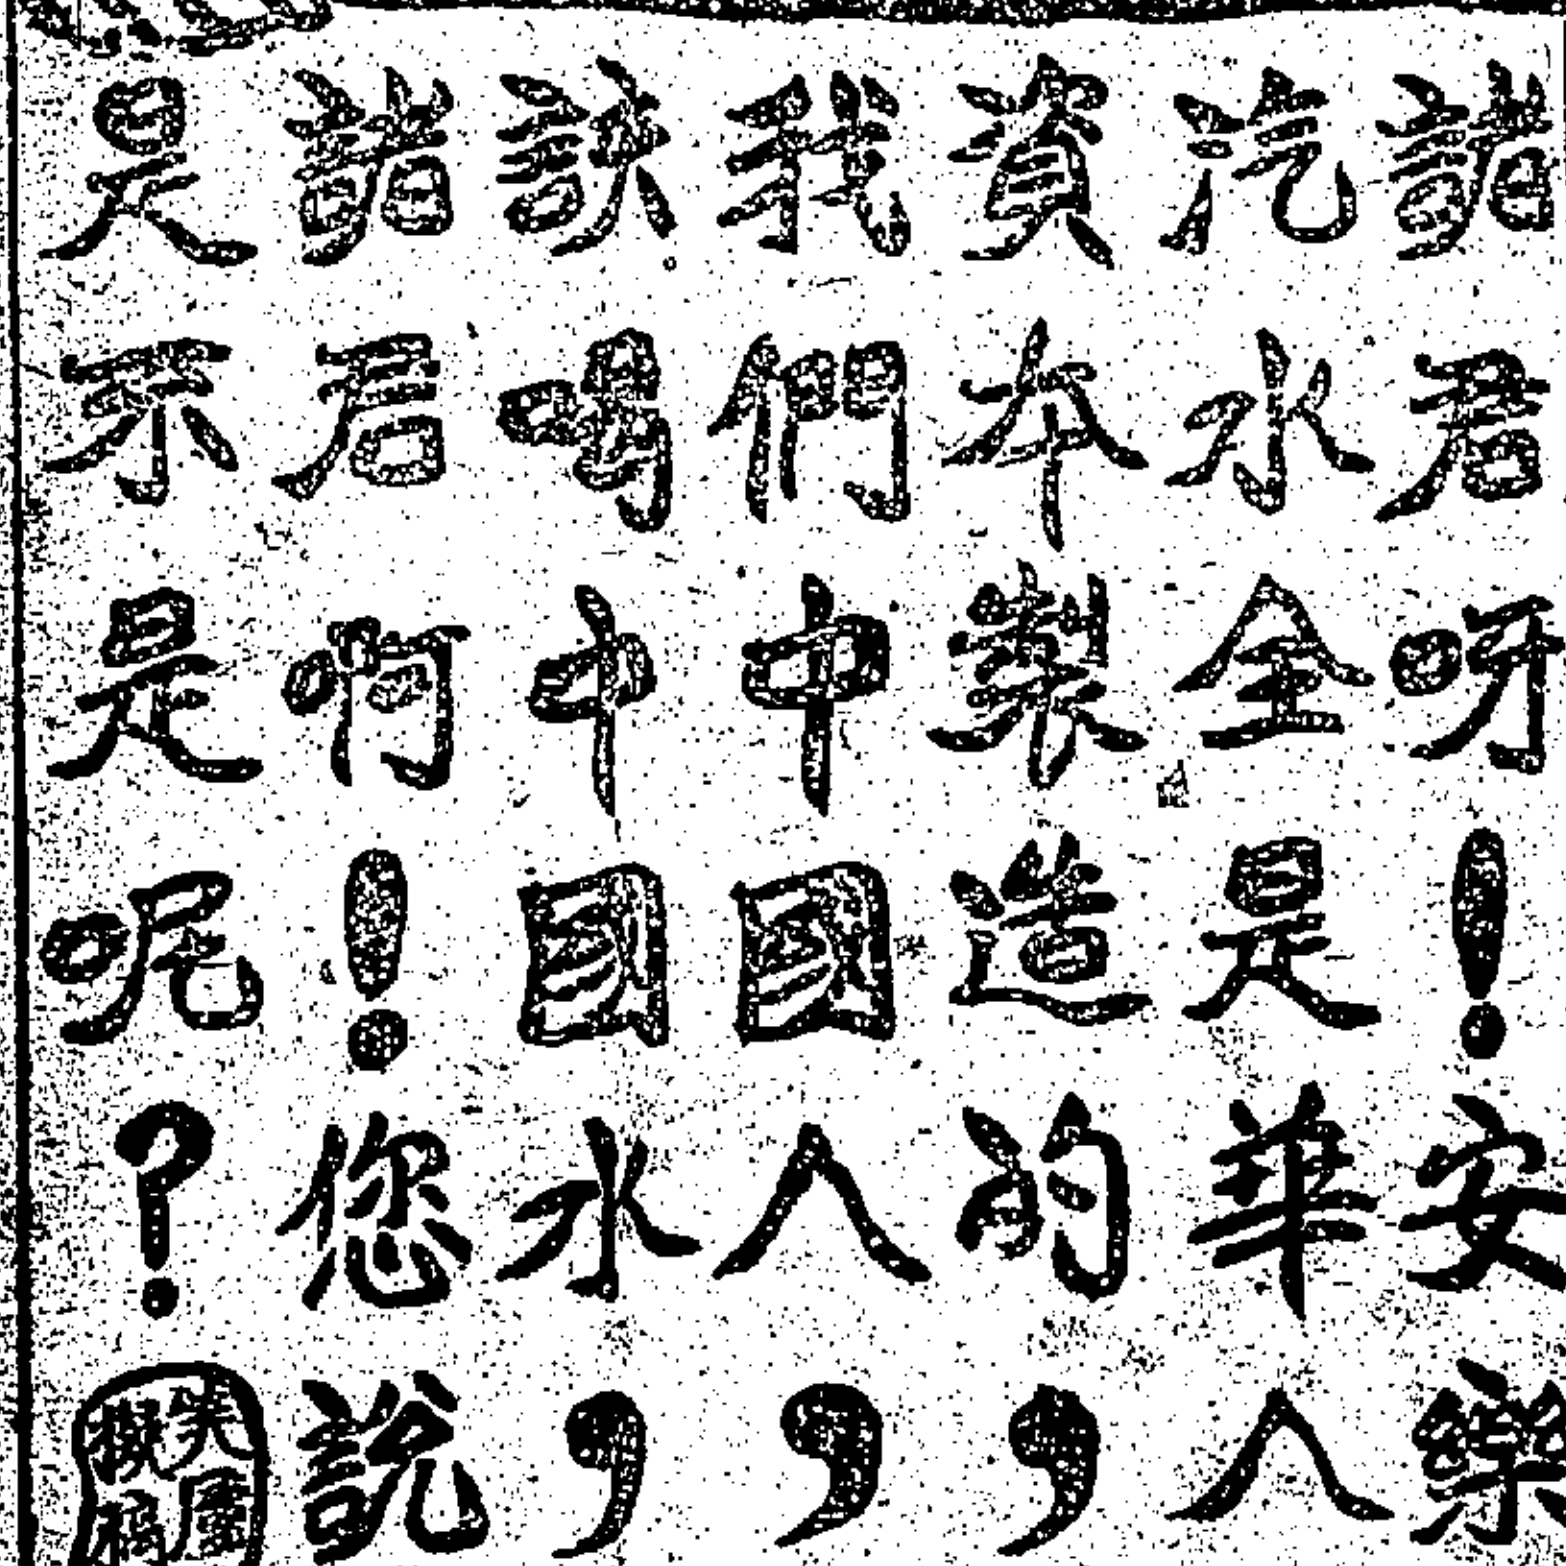 諸君呀！安樂
汽水全是華人
資本製造的，
我們中國人，
該喝中國水，
諸君啊！您說
是不是呢？